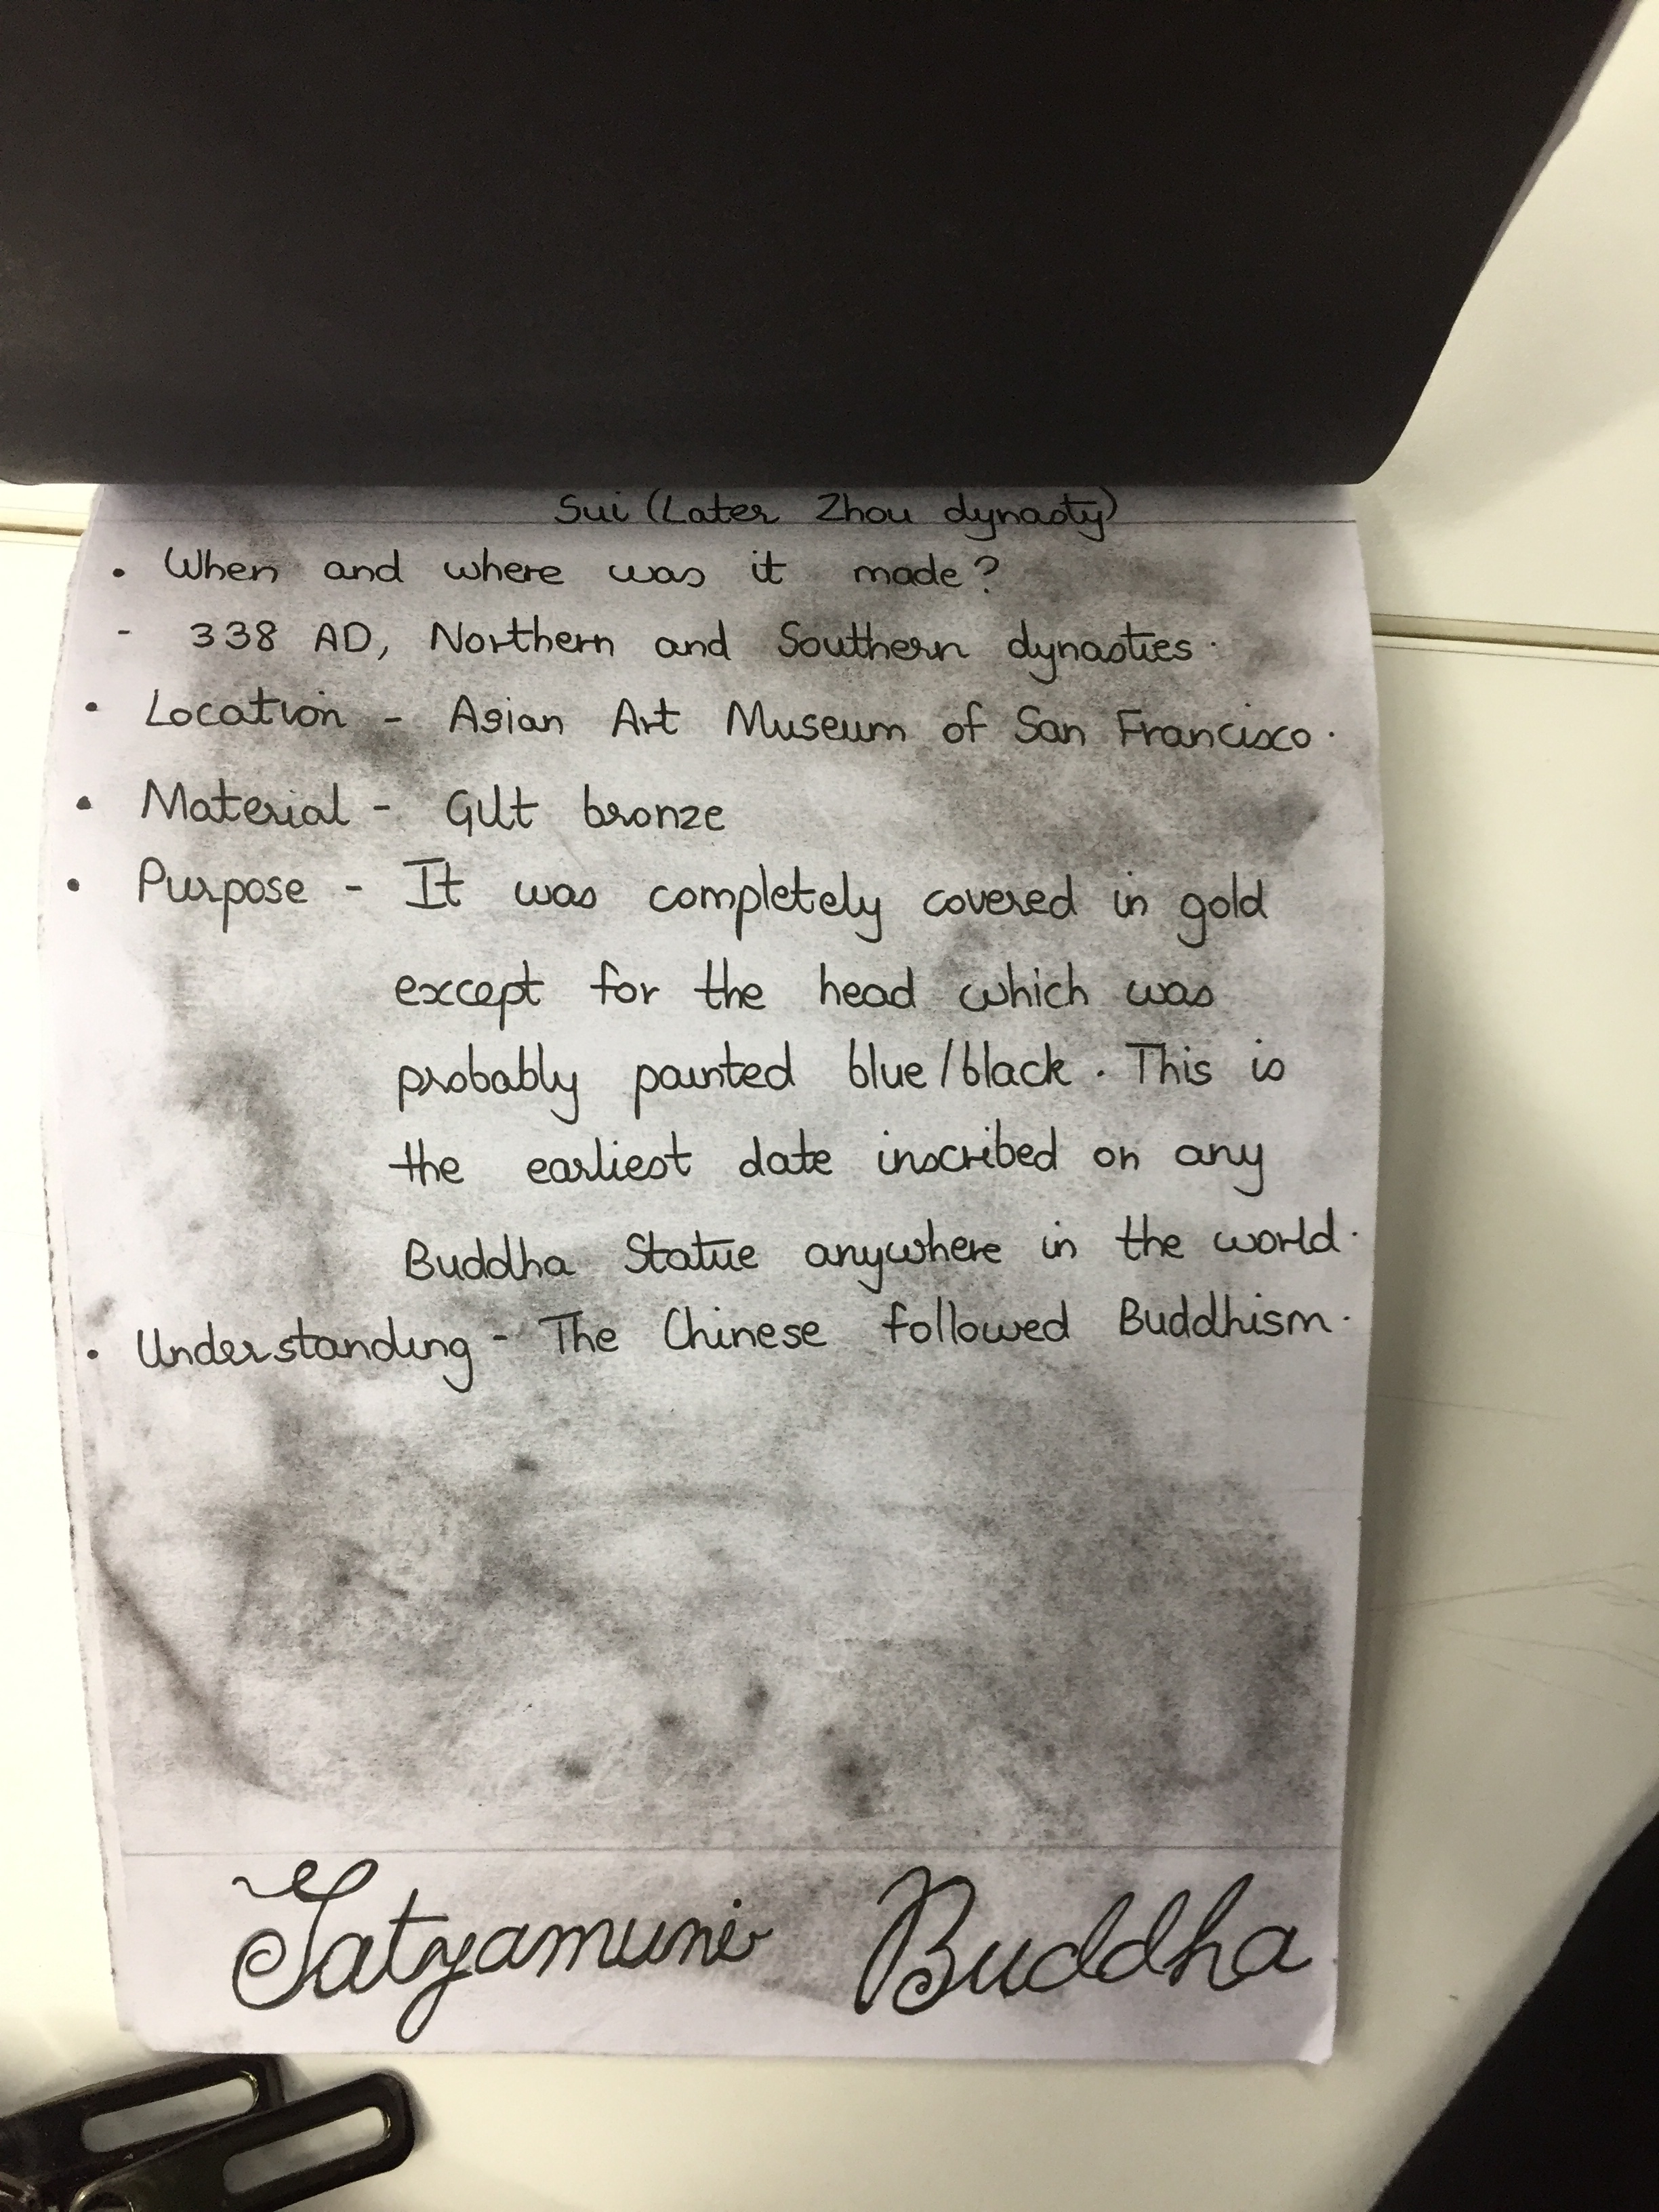 Sui (Later Zhou dynasty)
• When and where was it made?
- 338 AD, Northern and Southern dynasties.
• Location - Asian Art Museum of San Francisco.
• Material - Gilt bronze
• Purpose - It was completely covered in gold
except for the head which was
probably painted blue/black. This is
the earliest date inscribed on any
Buddha Statue anywhere in the world.
• Understanding - The Chinese followed Buddhism.
Satyamuni Buddha